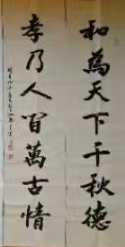 和為天下千秋德
孝乃人間萬古情